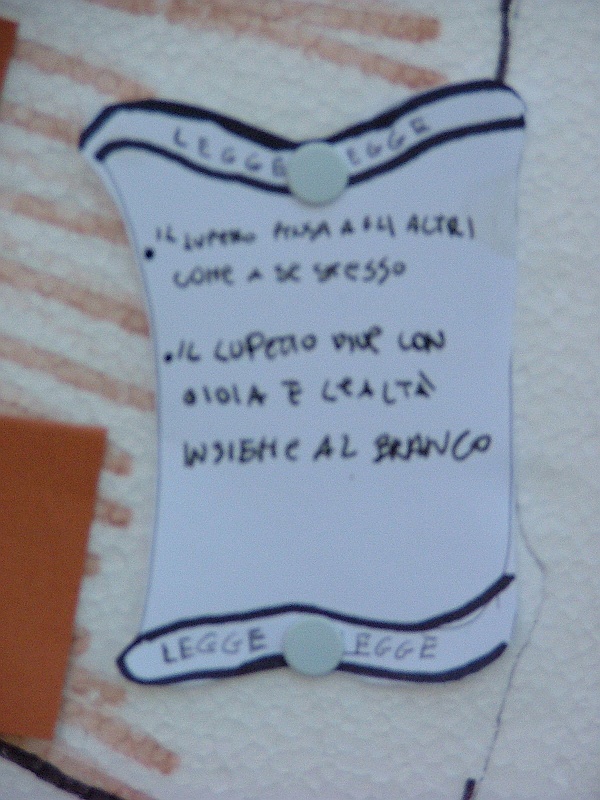 LEGGE LEGGE
• IL LUPETTO PENSA AGLI ALTRI
COME A SE STESSO
• IL LUPETTO VIVE CON
GIOIA E LEALTÀ
INSIEME AL BRANCO
LEGGE LEGGE